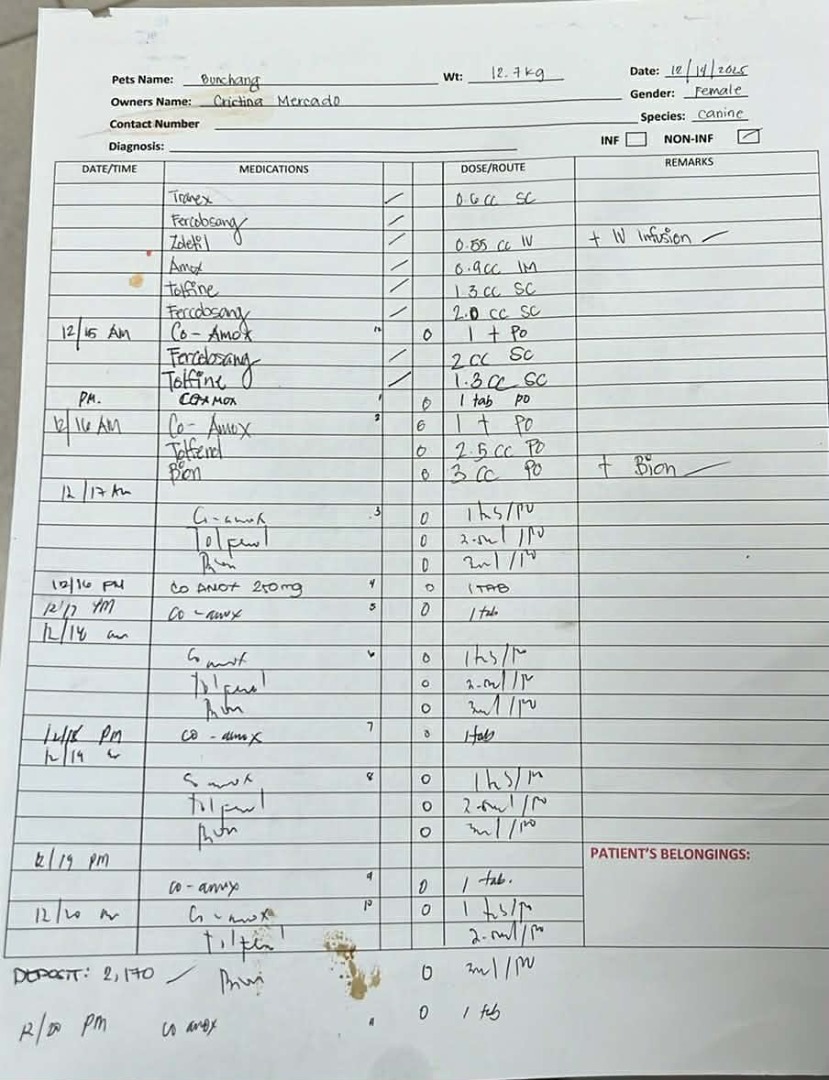 Pets Name: Bunchang Wt: 12.7kg Date: 12/14/2025
Owners Name: Cristina Mercado Gender: Female
Contact Number Species: canine
Diagnosis: INF NON-INF
DATE/TIME MEDICATIONS DOSE/ROUTE REMARKS
Tranex 0.6 cc SC
Fercobsang
Zoletil 0.55 cc IV + IV Infusion
Amox 0.9cc IM
Tolfine 1.3 cc SC
Fercobsang 2.0 cc SC
12/15 AM Co-Amox 0 1 t Po
Fercobsang 2 cc SC
Tolfine 1.3 cc SC
PM. COAMOX 1 0 1 tab po
12/16 AM Co-Amox 2 0 1 t Po
Tolfenol 0 2.5 cc Po
Bion 0 3 cc Po + Bion
12/17 Am
Co-amox 3 0 1 /po
Tolfenol 0 2.5ml /po
Bion 0 3ml /po
12/16 PM CO AMOX 250mg 4 0 1 TAB
12/17 PM co-amox 5 0 1 tab
12/18 am
Co amox 6 0 1 /po
Tolfenol 0 2.5ml /po
Bion 0 3ml /po
12/18 PM co-amox 7 0 1 tab
12/19
Co amox 8 0 1 /po
Tolfenol 0 2.5ml /po
Bion 0 3ml /po
12/19 pm PATIENT'S BELONGINGS:
co-amox 9 0 1 tab.
12/20 am Co-amox 10 0 1 /po
Tolfenol 2.5ml/po
DEPOSIT: 2,170 Bion 0 3ml/po
12/20 PM co amox 11 0 1 tab